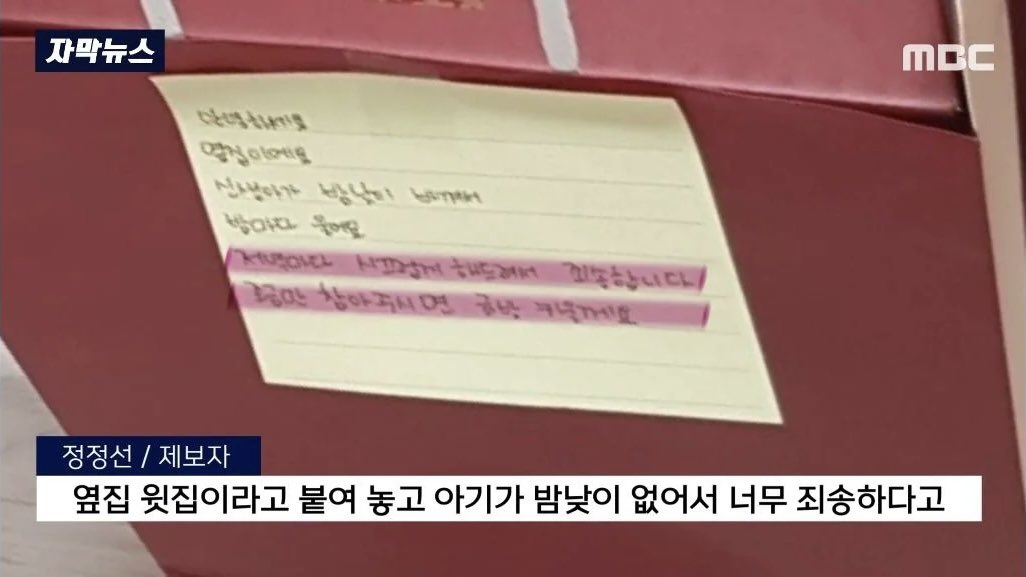 자막뉴스
MBC
안녕하세요
옆집이에요
신생아가 밤낮이 바껴서
밤마다 울어요
저녁마다 시끄럽게 해드려서 죄송합니다
조금만 참아주시면 금방 키울게요
정정선 / 제보자
옆집 윗집이라고 붙여 놓고 아기가 밤낮이 없어서 너무 죄송하다고